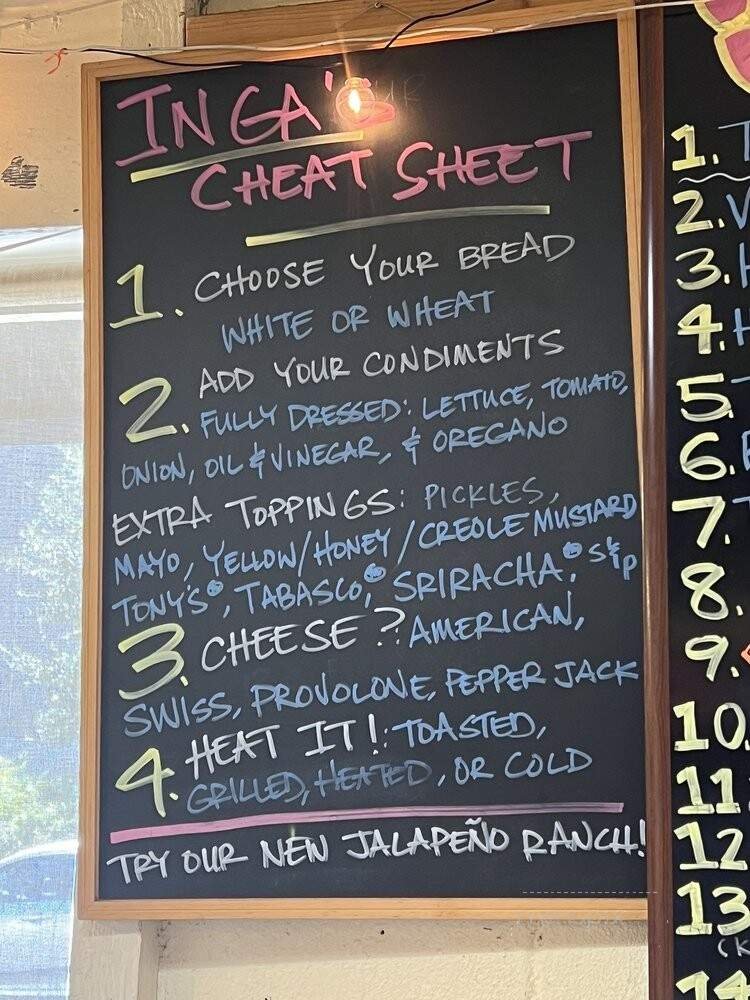 INGA'S
CHEAT SHEET
1. CHOOSE YOUR BREAD
WHITE OR WHEAT
2. ADD YOUR CONDIMENTS
FULLY DRESSED: LETTUCE, TOMATO,
ONION, OIL & VINEGAR, & OREGANO
EXTRA TOPPINGS: PICKLES,
MAYO, YELLOW/HONEY/CREOLE MUSTARD
TONY'S, TABASCO, SRIRACHA, S&P
3. CHEESE? AMERICAN,
SWISS, PROVOLONE, PEPPER JACK
4. HEAT IT!: TOASTED,
GRILLED, HEATED, OR COLD
TRY OUR NEW JALAPEÑO RANCH!
1.
2.
3.
4.
5.
6.
7.
8.
9.
10.
11
12
13
14